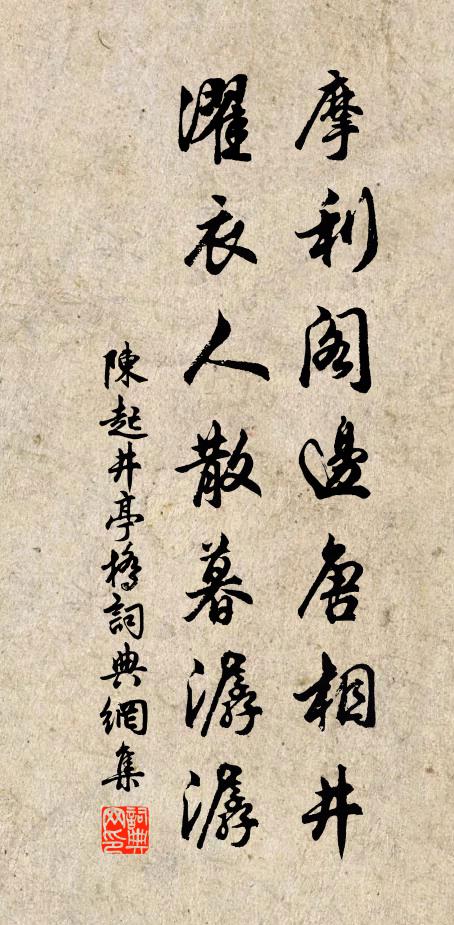 摩利阁邊唐相井
濯衣人散暮潺潺
陳起井亭橋詞典網集
詞典網印